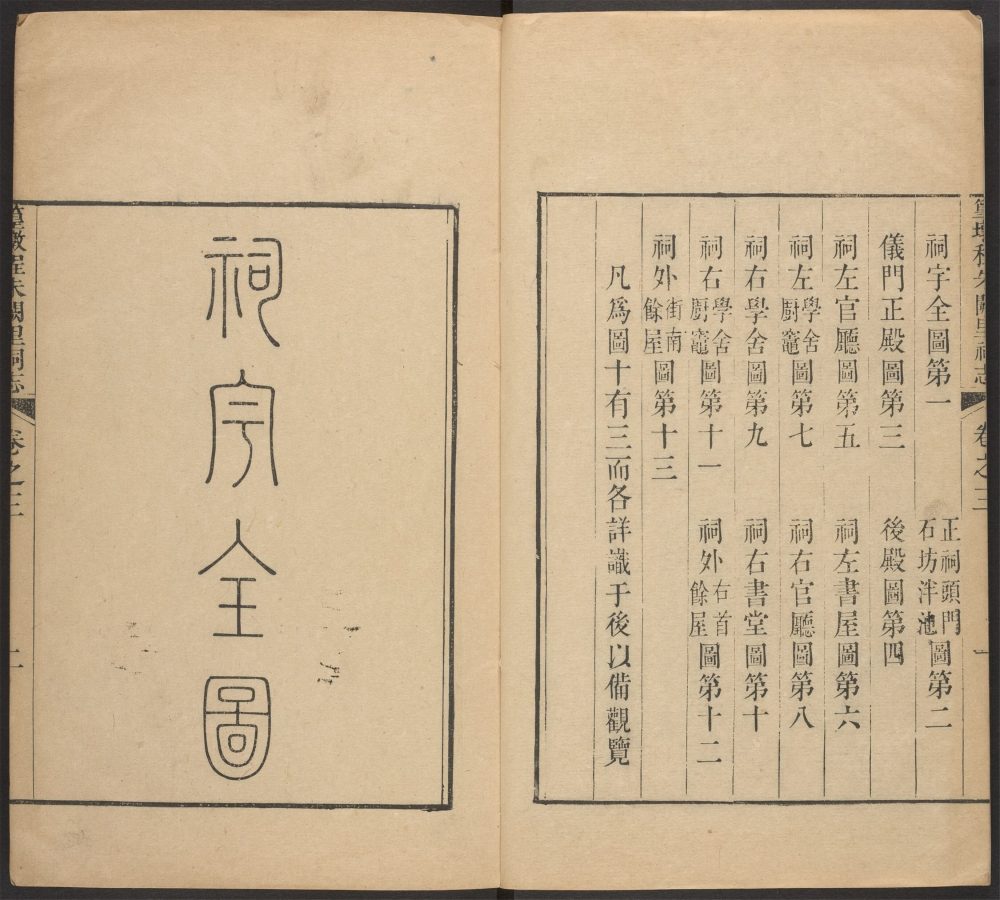 篁墩程朱闕里祠志 卷之三 一
祠宇全圖第一 正祠頭門石坊泮池圖第二
儀門正殿圖第三 後殿圖第四
祠左官廳圖第五 祠左書屋圖第六
祠左學舍廚竈圖第七 祠右官廳圖第八
祠右學舍圖第九 祠右書堂圖第十
祠右學舍廚竈圖第十一 祠外右首餘屋圖第十二
祠外街南餘屋圖第十三
凡爲圖十有三而各詳識于後以備觀覽
祠宇全圖
篁墩程朱闕里祠志 卷之三 二